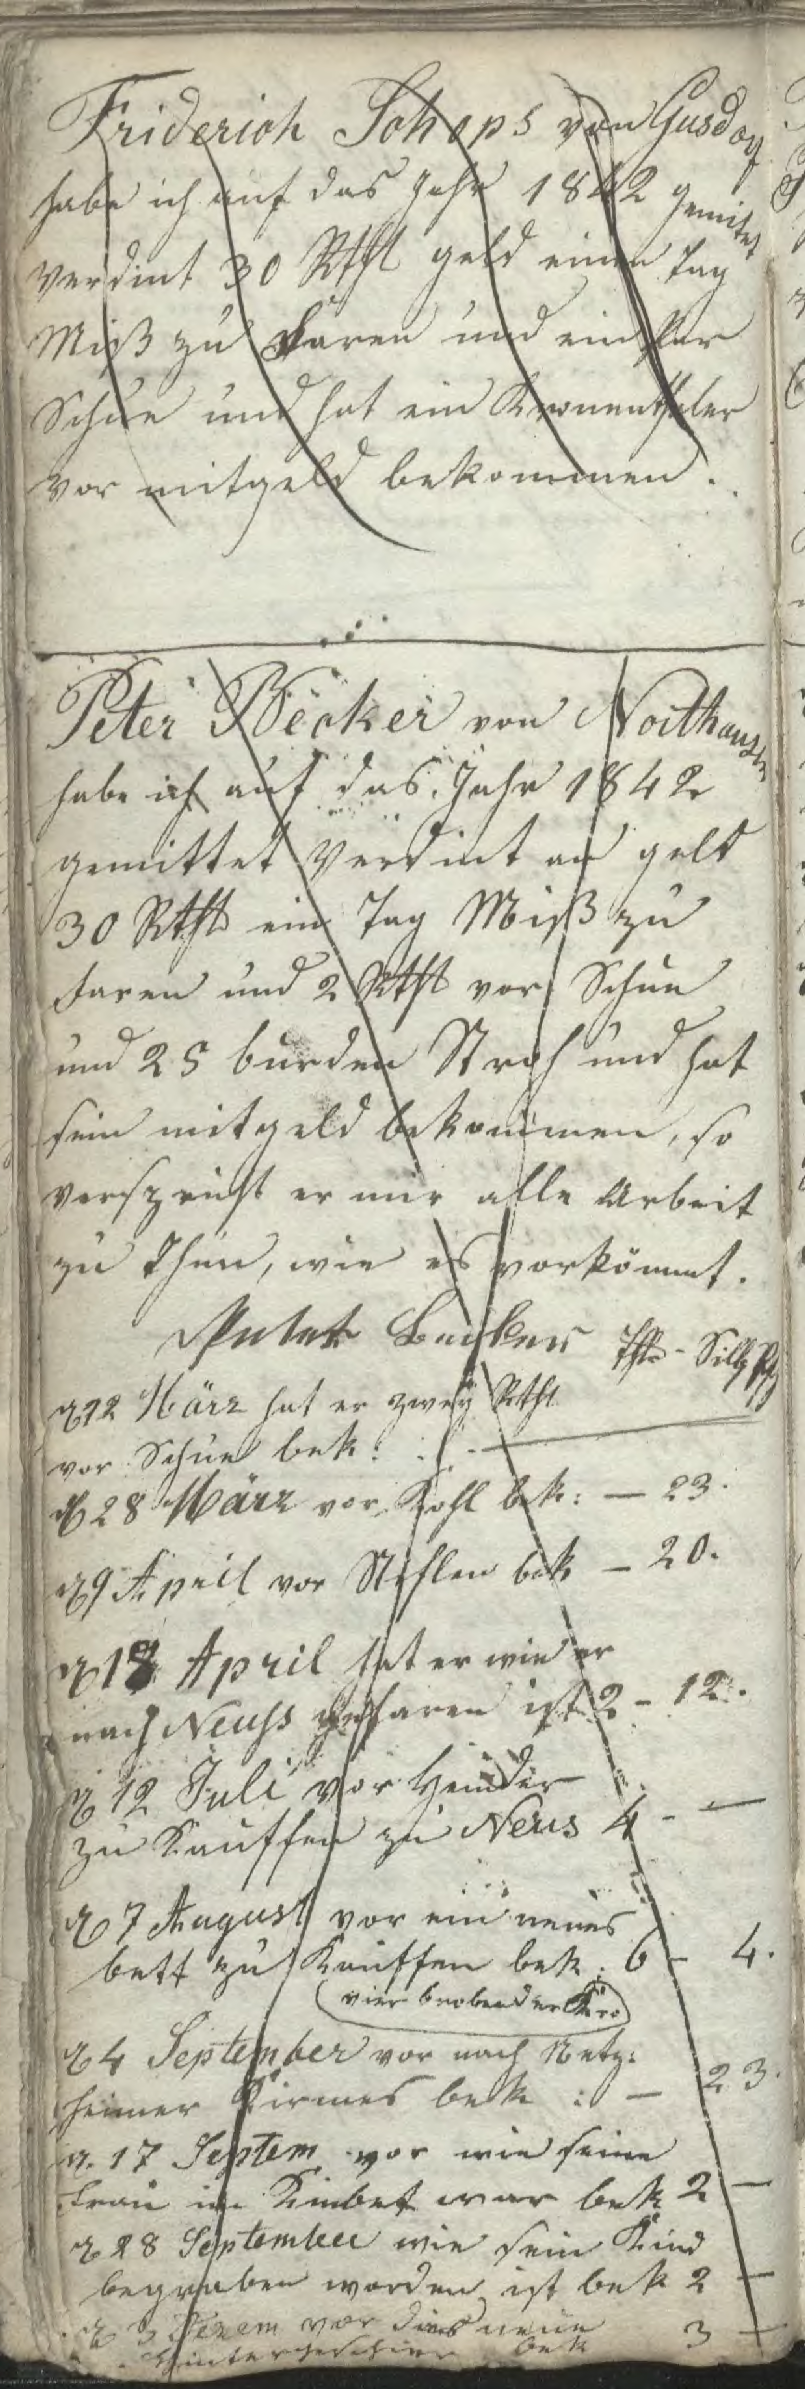 Friderich Schops von Gusdorf
habe ich auf das Jahr 1842 gemitet
verdint 30 Rthl geld einen Tag
Miß zu faren und ein par
Schue und hat ein Kronenthaler
vor mitgeld bekommen.
Peter Becker von Noithausen
habe ich auf das Jahr 1842
gemittet verdint an gelt
30 Rthl ein Tag Miß zu
faren und 2 Rthl vor Schue
und 25 burden Stroh und hat
sein mitgeld bekommen, so
verspricht er mir alle Arbeit
zu Thun, wie es vorkömmt.
Beckers Thl - Silbg
12 März hat er zwey Rthl
vor Schue bek:
28 März vor Kohl bek: — 23.
9 April vor bek — 20.
18 April hat er wie er
nach Neuss gefaren ist 2 - 12.
12 Juli vor Hemder
zu Kauffen zu Neus 4 - —
7 August vor ein neues
bett zu Kauffen bek: 6 - 4.
vier
4 September vor nach
heimer Kirmes bek: — 23.
17 Septem vor wie seine
Frau im Kinbet war bek 2 —
28 September wie sein Kind
begraben worden ist bek 2 —
3 Dezem vor das neue
bek 3 —